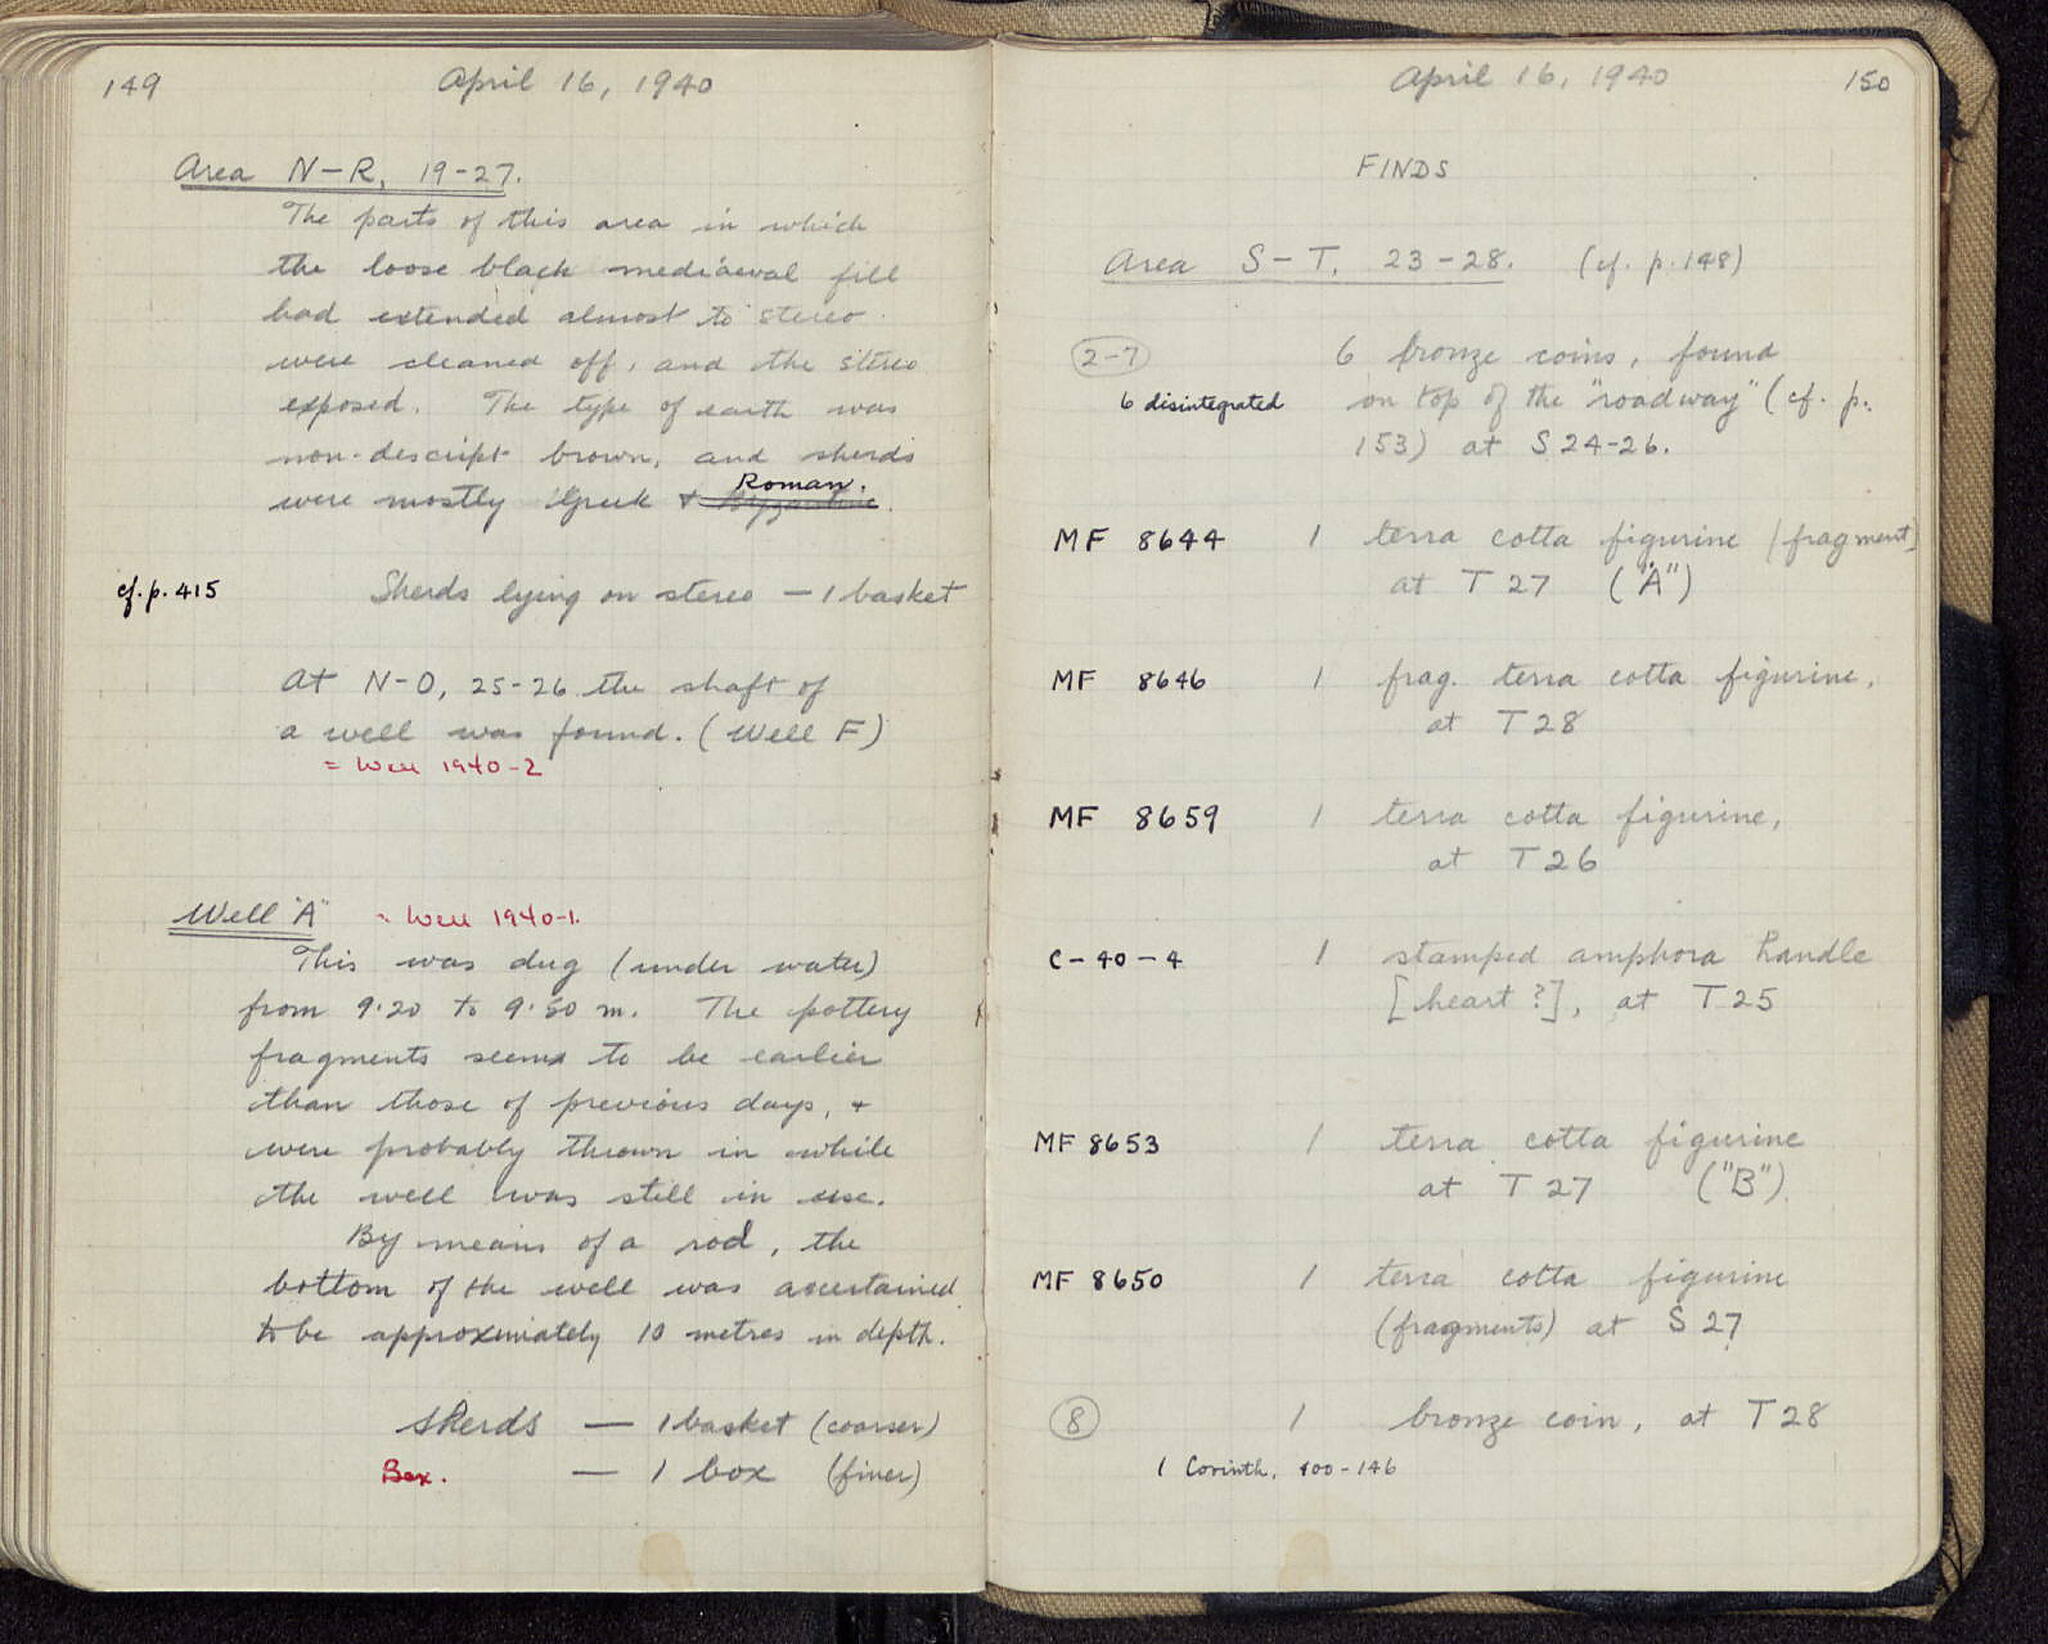 149
April 16, 1940
Area N-R, 19-27.
The parts of this area in which
the loose black mediaeval fill
had extended almost to stereo
were cleaned off, and the stereo
exposed. The type of earth was
non-descript brown, and sherds
Roman.
were mostly Greek + Byzantine.
cf. p. 415 Sherds lying on stereo — 1 basket
At N-O, 25-26 the shaft of
a well was found. (Well F)
= Well 1940-2
Well "A" = Well 1940-1.
This was dug (under water)
from 9.20 to 9.50 m. The pottery
fragments seems to be earlier
than those of previous days, +
were probably thrown in while
the well was still in use.
By means of a rod, the
bottom of the well was ascertained
to be approximately 10 metres in depth.
Sherds — 1 basket (coarser)
Box. — 1 box (finer)
April 16, 1940
150
FINDS
Area S-T, 23-28. (cf. p. 148)
2-7 6 bronze coins, found
6 disintegrated on top of the "roadway" (cf. p.
153) at S 24-26.
MF 8644 1 terra cotta figurine (fragment)
at T 27 ("A")
MF 8646 1 frag. terra cotta figurine,
at T 28
MF 8659 1 terra cotta figurine,
at T 26
C-40-4 1 stamped amphora handle
[heart ?], at T 25
MF 8653 1 terra cotta figurine
at T 27 ("B").
MF 8650 1 terra cotta figurine
(fragments) at S 27
8 1 bronze coin, at T 28
1 Corinth, 400-146